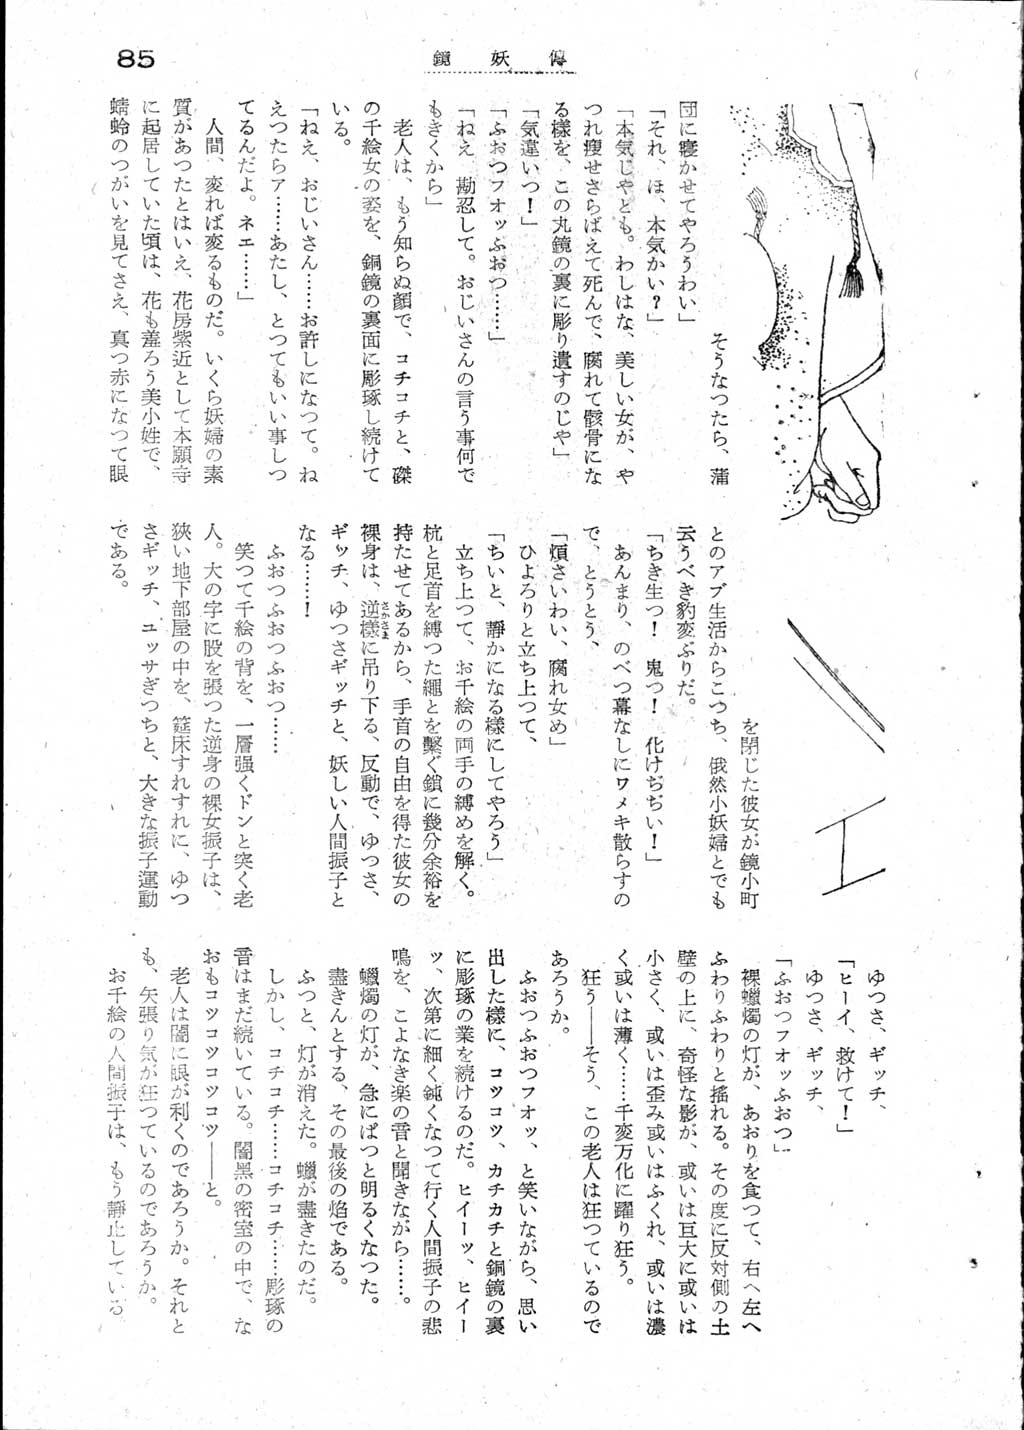 85
鏡妖傳
そうなつたら、蒲
団に寝かせてやろうわい」
「それ、ほ、本気かい？」
「本気じやとも。わしはな、美しい女が、や
つれ痩せさらばえて死んで、腐れて骸骨にな
る様を、この丸鏡の裏に彫り遺すのじや」
「気違いつ！」
「ふおつフオッふおつ……」
「ねえ、勘忍して。おじいさんの言う事何で
もきくから」
老人は、もう知らぬ顔で、コチコチと、磔
の千絵女の姿を、銅鏡の裏面に彫琢し続けて
いる。
「ねえ、おじいさん……お許しになつて。ね
えつたらア……あたし、とつてもいい事しつ
てるんだよ。ネエ……」
人間、変れば変るものだ。いくら妖婦の素
質があつたとはいえ、花房紫近として本願寺
に起居していた頃は、花も羞ろう美小姓で、
蜻蛉のつがいを見てさえ、真つ赤になつて眼
を閉じた彼女が鏡小町
とのアブ生活からこつち、俄然小妖婦とでも
云うべき豹変ぶりだ。
「ちき生つ！　鬼つ！　化けぢぢい！」
あんまり、のべつ幕なしにワメキ散らすの
で、とうとう、
「煩さいわい、腐れ女め」
ひよろりと立ち上つて、
「ちいと、静かになる様にしてやろう」
立ち上つて、お千絵の両手の縛めを解く。
杭と足首を縛つた縄とを繋ぐ鎖に幾分余裕を
持たせてあるから、手首の自由を得た彼女の
裸身は、逆樣に吊り下る、反動で、ゆつさ、
さかさま
ギッチ、ゆつさギッチと、妖しい人間振子と
なる……！
ふおつふおつふおつ……
笑つて千絵の背を、一層強くドンと突く老
人。大の字に股を張つた逆身の裸女振子は、
狭い地下部屋の中を、筵床すれすれに、ゆつ
さギッチ、ユッサぎつちと、大きな振子運動
である。
ゆつさ、ギッチ、
「ヒーイ、救けて！」
ゆつさ、ギッチ、
「ふおつフオッふおつ」
裸蠟燭の灯が、あおりを食つて、右へ左へ
ふわりふわりと搖れる。その度に反対側の土
壁の上に、奇怪な影が、或いは巨大に或いは
小さく、或いは歪み或いはふくれ、或いは濃
く或いは薄く……千変万化に躍り狂う。
狂う――そう、この老人は狂つているので
あろうか。
ふおつふおつフオッ、と笑いながら、思い
出した様に、コツコツ、カチカチと銅鏡の裏
に彫琢の業を続けるのだ。ヒイーッ、ヒイー
ッ、次第に細く鈍くなつて行く人間振子の悲
鳴を、こよなき楽の音と聞きながら……。
蠟燭の灯が、急にぱつと明るくなつた。
盡きんとする、その最後の焔である。
ふつと、灯が消えた。蠟が盡きたのだ。
しかし、コチコチ……コチコチ……彫琢の
音はまだ続いている。闇黒の密室の中で、な
おもコツコツコツコツ――と。
老人は闇に眼が利くのであろうか。それと
も、矢張り気が狂つているのであろうか。
お千絵の人間振子は、もう静止している